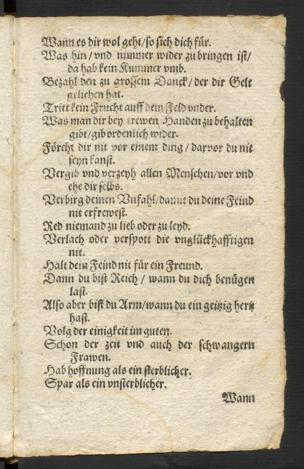 Wann es dir wol geht/so sich dich für.
Was hin/ vnd nimmer wider zu bringen ist/
da hab kein Kummer vmb.
Bezahl den zu grossem Danck/ der dir Gelt
geliehen hat.
Tritt kein Frucht auff dem Feld vnder.
Was man dir bey trewen Handen zu behalten
gibt/gib ordenlich wider.
Förcht dir nit vor einem ding/ darvor du nit
seyn kanst.
Vergib vnd verzeyh allen Menschen/vor vnd
ehe dir selbs.
Verbirg deinen Vnfahl/damit du deine Feind
nit erfrewest.
Red niemand zu lieb oder zu leyd.
Verlach oder verspott die vnglückhafftigen
nit.
Halt dein Feind nit für ein Freund.
Dann du bist Reich / wann du dich benügen
last.
Also aber bist du Arm/wann du ein geitzig hertz
hast.
Volg der einigkeit im guten.
Schon der zeit vnd auch der schwangern
Frawen.
Hab hoffnung als ein sterblicher.
Spar als ein vnsterblicher.
Wann